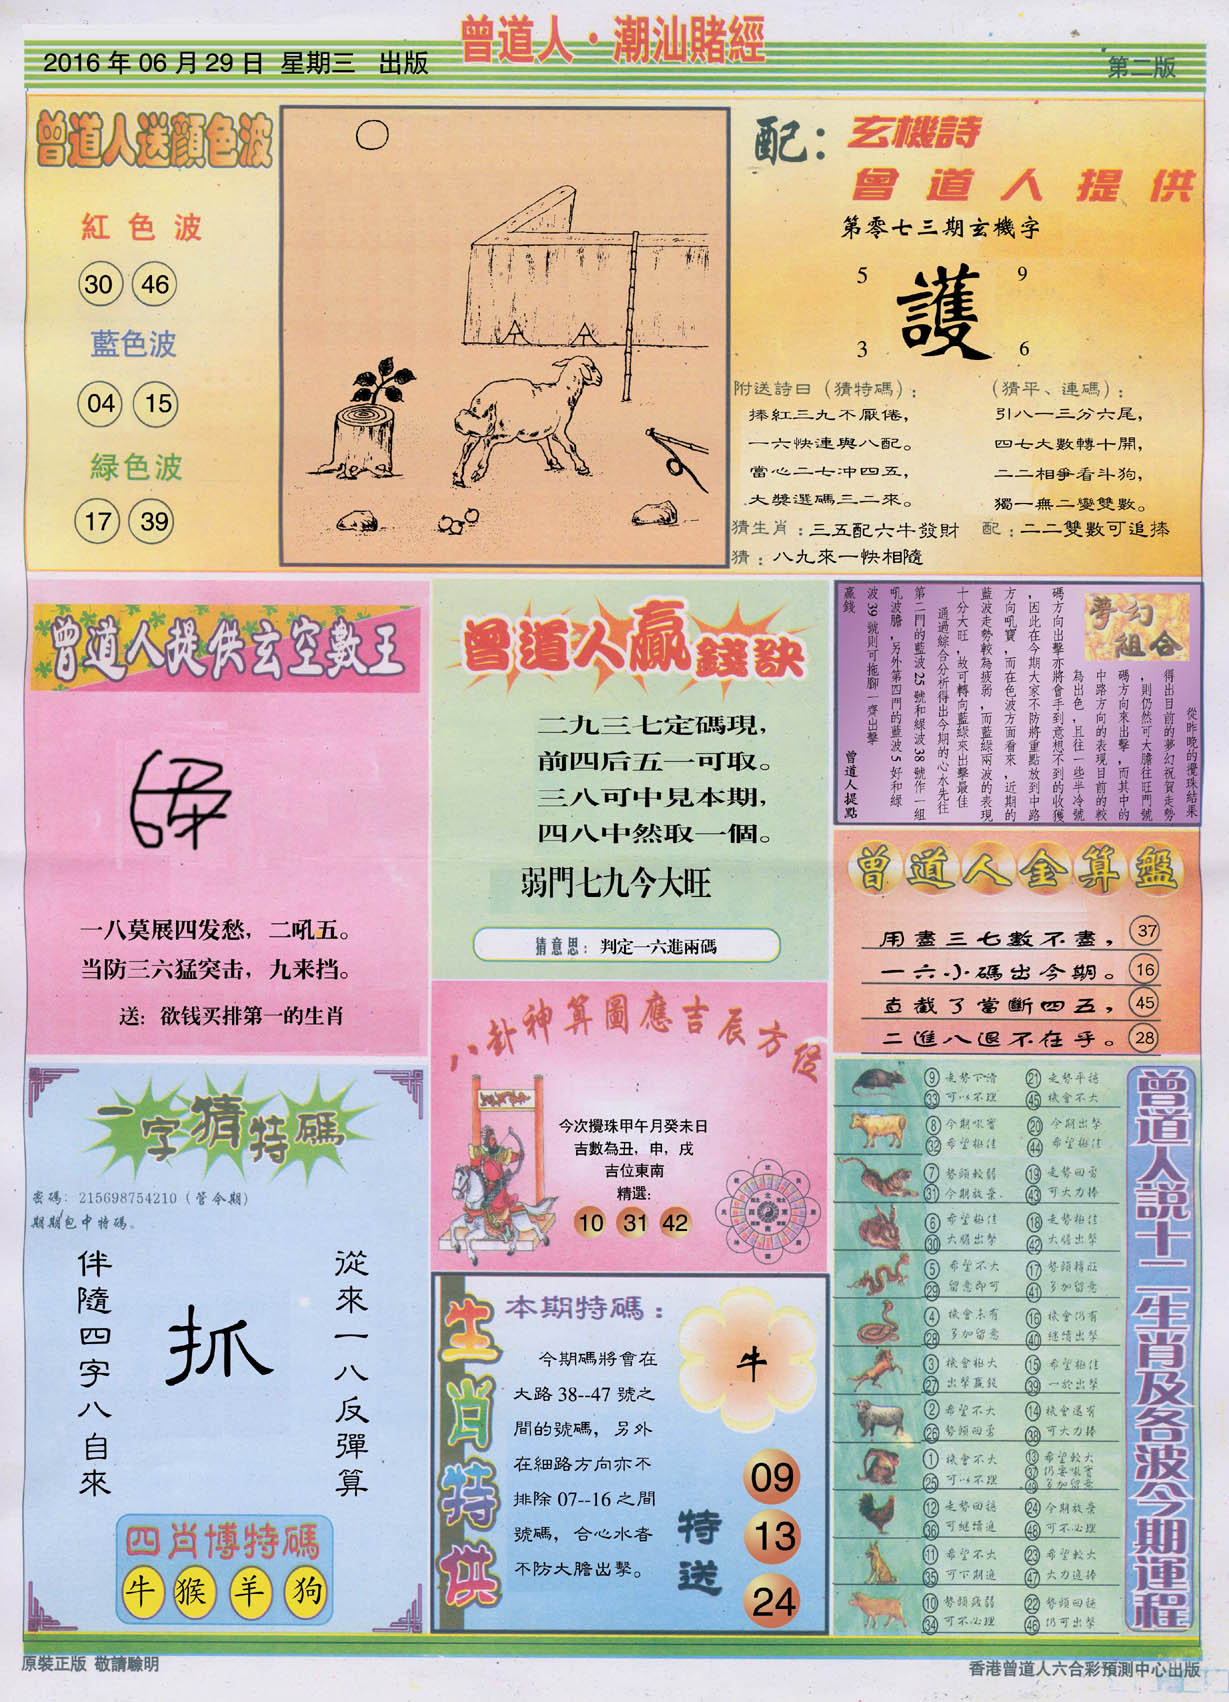 曾道人·潮汕賭經
2016 年 06 月 29 日 星期三 出版
第二版
曾道人送顏色波
紅色波
30 46
藍色波
04 15
緑色波
17 39
配：玄機詩
曾道人提供
第零七三期玄機字
5 9
護
3 6
附送詩曰（猜特碼）：
捧紅三九不厭倦，
一六快連與八配。
當心二七冲四五，
大獎選碼三二來。
（猜平、連碼）：
引八一三分六尾，
四七大數轉十開，
二二相爭看斗狗，
獨一無二變雙數。
猜生肖：三五配六牛發財
配：二二雙數可追捧
猜：八九來一快相隨
曾道人提供玄空數王
一八莫展四发愁，二吼五。
当防三六猛突击，九来挡。
送：欲钱买排第一的生肖
曾道人贏錢訣
二九三七定碼現，
前四后五一可取。
三八可中見本期，
四八中然取一個。
弱門七九今大旺
猜意思：判定一六進兩碼
夢幻
組合
從昨晚的攪珠結果
得出目前的夢幻祝賀走勢
，則仍然可大膽往旺門號
碼方向來出擊，而其中的
中路方向的表現目前的較
為出色，且往一些半冷號
碼方向出擊亦將會手到意想不到的收獲
，因此在今期大家不防將重點放到中路
方向吼寶，而在色波方面看來，近期的
藍波走勢較為疲弱，而藍綠兩波的表現
十分大旺，故可轉向藍綠來出擊最佳
通過綜合分析得出今期的心水先往
第二門的藍波 25 號和綠波 38 號作一組
吼波膽，另外第四門的藍波 5 好和綠
波 39 號則可拖腳一齊出擊
贏錢
曾道人提點
曾道人金算盤
用盡三七數不盡， 37
一六小碼出今期。 16
直截了當斷四五， 45
二進八退不在乎。 28
八卦神算圖應吉辰方位
今次攪珠甲午月癸未日
吉數為丑，申，戌
吉位東南
精選：
10 31 42
一字猜特碼
密碼：215698754210（管今期）
期期包中特碼。
從來一八反彈算
抓
伴隨四字八自來
四肖博特碼
牛 猴 羊 狗
生肖特供
本期特碼：
今期碼將會在
大路 38--47 號之
間的號碼，另外
在細路方向亦不
排除 07--16 之間
號碼，合心水者
不防大膽出擊。
牛
特送
09
13
24
曾道人説十二生肖及各波今期運程
9 走勢下滑 21 走勢平穩
33 可以不理 45 機會不大
8 今期吼寶 20 今期出擊
32 希望極佳 44 希望極佳
7 勢頭較弱 19 走勢回雷
31 今期放棄. 43 可大力捧
6 希望極佳 18 走勢極佳
30 大膽出擊 42 大膽出擊
5 希望不大 17 勢頭轉旺
29 留意即可 41 多加留意
4 機會未有 16 機會仍有
28 多加留意 40 繼續出擊
3 機會極大 15 希望極佳
27 出擊贏錢 39 一於出擊
2 希望不大 14 機會還有
26 勢頭回雷 38 可大力捧
1 機會不大 13 希望較大
25 可以不理 37 仍要吼寶
49 多加留意
12 走勢回穩 24 今期放棄
36 可繼續追 48 可不必理
11 希望不大 23 希望較大
35 可下期追 47 大力追捧
10 勢頭疲弱 22 勢頭回穩
34 可不必理 46 仍可出擊
原裝正版 敬請驗明
香港曾道人六合彩預測中心出版